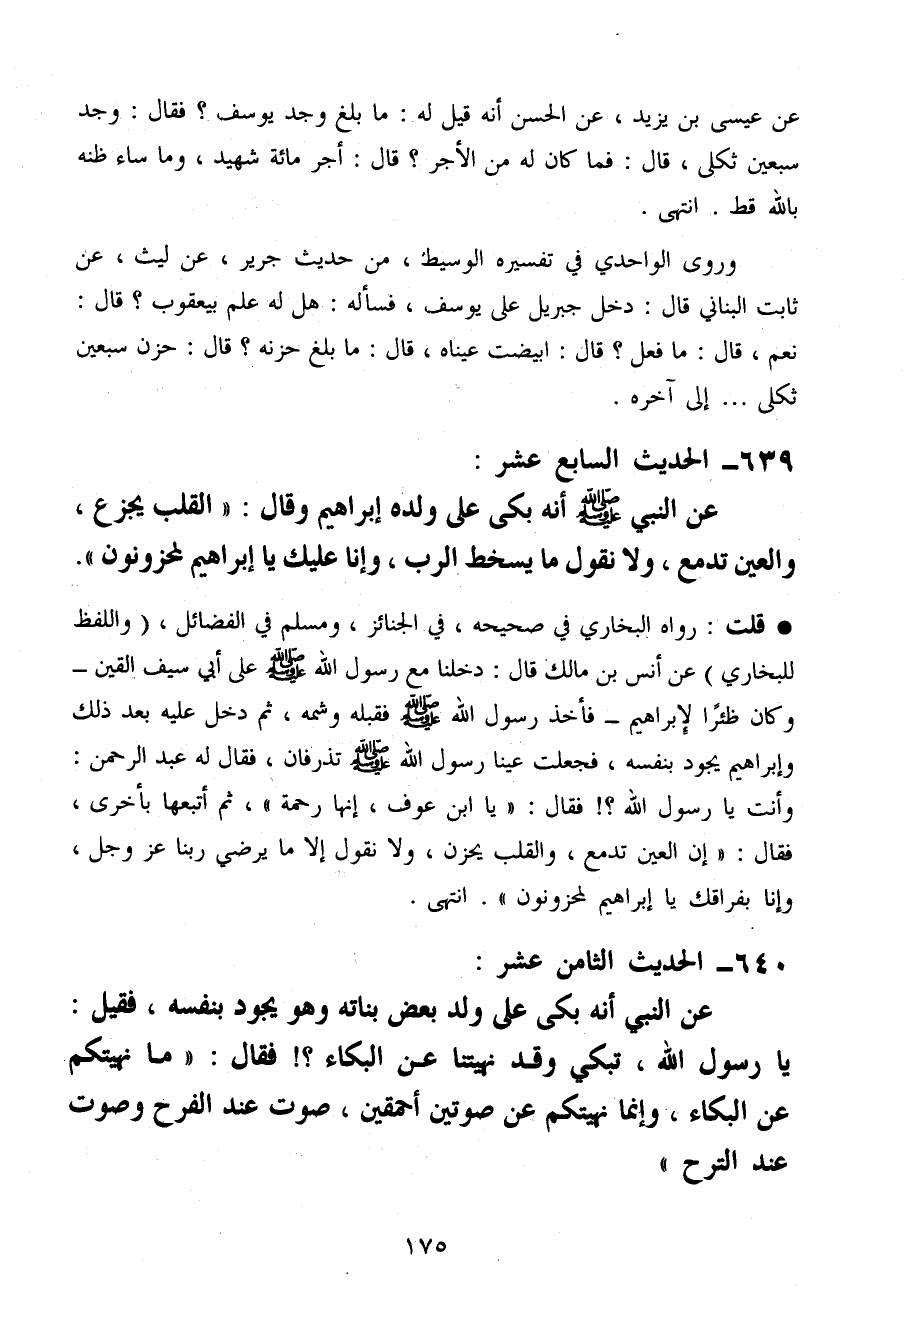 عن عيسى بن يزيد ، عن الحسن أنه قيل له : ما بلغ وجد يوسف ؟ فقال : وجد
سبعين ثكلى ، قال : فما كان له من الأجر ؟ قال : أجر مائة شهيد ، وما ساء ظنه
بالله قط . انتهى .
وروى الواحدي في تفسيره الوسيط ، من حديث جرير ، عن ليث ، عن
ثابت البناني قال : دخل جبريل على يوسف ، فسأله : هل له علم بيعقوب ؟ قال :
نعم ، قال : ما فعل ؟ قال : ابيضت عيناه ، قال : ما بلغ حزنه ؟ قال : حزن سبعين
ثكلى ... إلى آخره .
٦٣٩ـ الحديث السابع عشر :
عن النبي ﷺ أنه بكى على ولده إبراهيم وقال : « القلب يجزع ،
والعين تدمع ، ولا نقول ما يسخط الرب ، وإنا عليك يا إبراهيم لمحزونون ».
● قلت : رواه البخاري في صحيحه ، في الجنائز ، ومسلم في الفضائل ، ( واللفظ
للبخاري ) عن أنس بن مالك قال : دخلنا مع رسول الله ﷺ على أبي سيف القين ـ
وكان ظئرًا لإبراهيم ـ فأخذ رسول الله ﷺ فقبله وشمه ، ثم دخل عليه بعد ذلك
وإبراهيم يجود بنفسه ، فجعلت عينا رسول الله ﷺ تذرفان ، فقال له عبد الرحمن :
وأنت يا رسول الله ؟! فقال : « يا ابن عوف ، إنها رحمة » ، ثم أتبعها بأخرى ،
فقال : « إن العين تدمع ، والقلب يحزن ، ولا نقول إلا ما يرضي ربنا عز وجل ،
وإنا بفراقك يا إبراهيم لمحزونون » . انتهى .
٦٤٠ـ الحديث الثامن عشر :
عن النبي أنه بكى على ولد بعض بناته وهو يجود بنفسه ، فقيل :
يا رسول الله ، تبكي وقد نهيتنا عن البكاء ؟! فقال : « ما نهيتكم
عن البكاء ، وإنما نهيتكم عن صوتين أحمقين ، صوت عند الفرح وصوت
عند الترح »
١٧٥